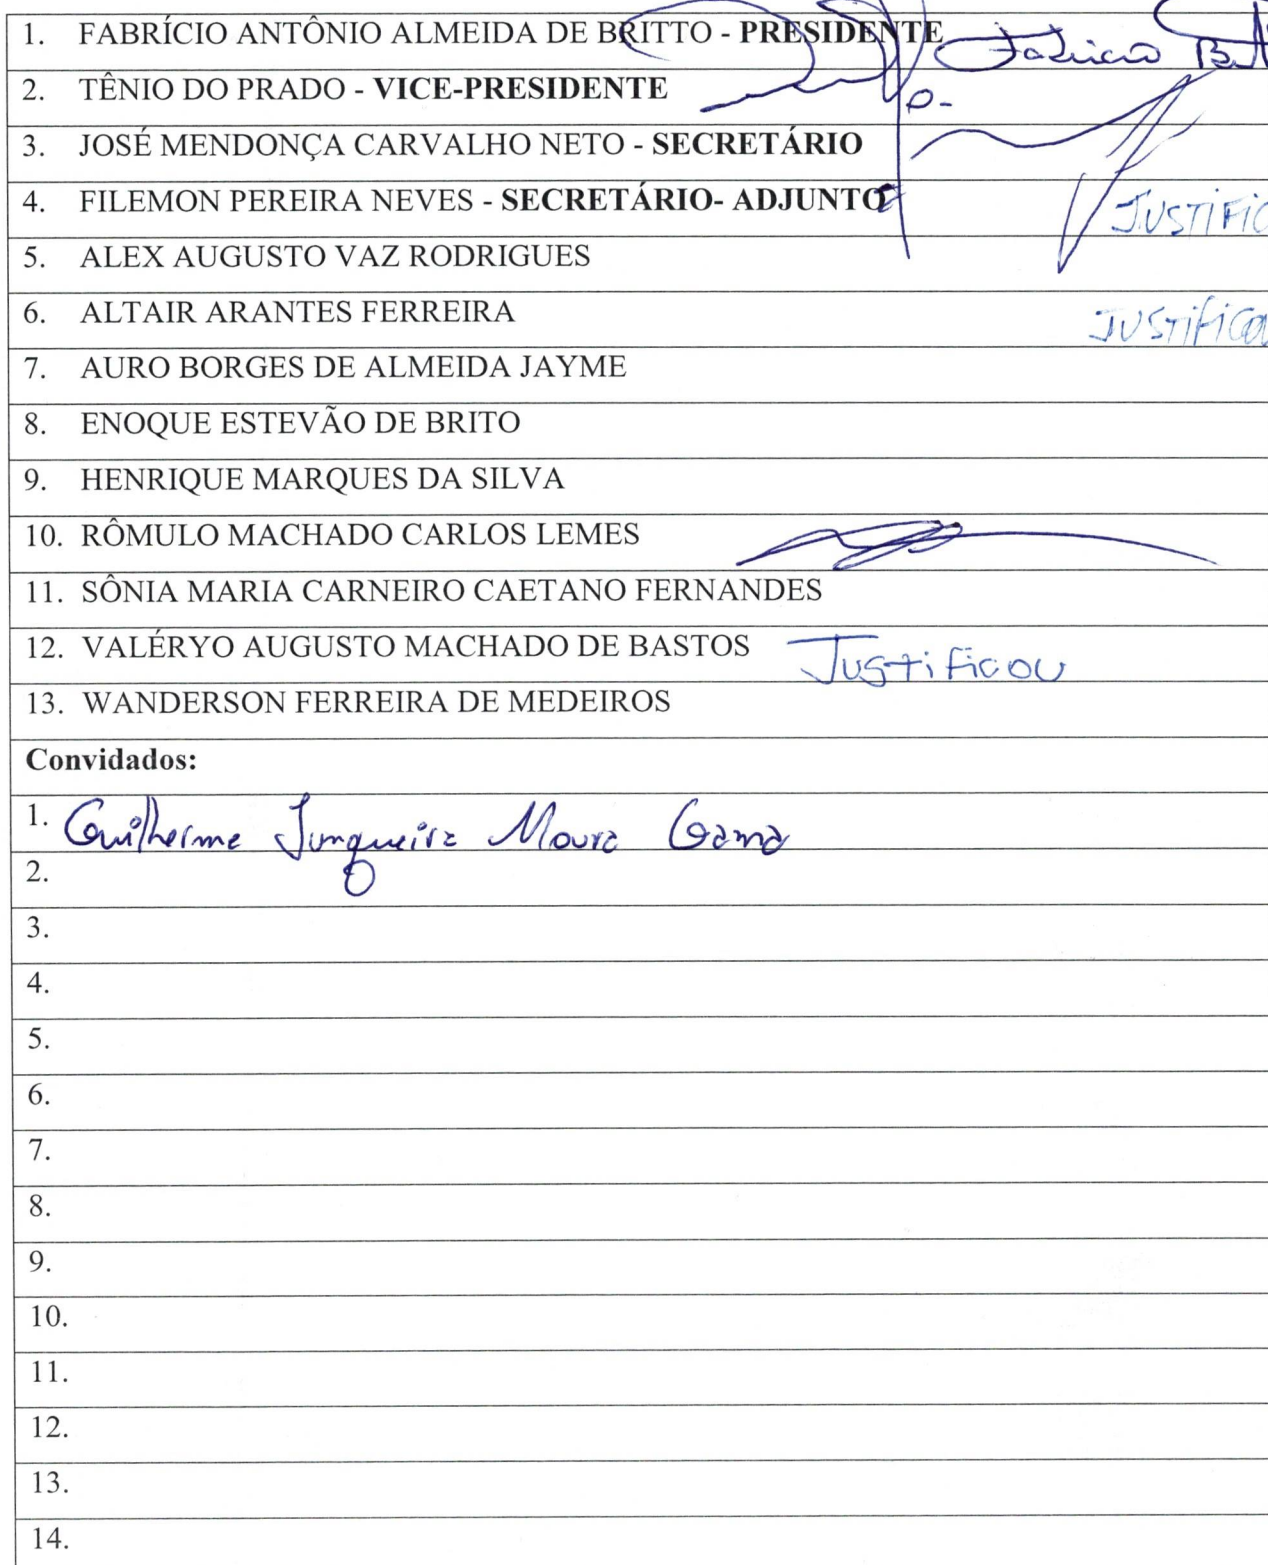 1. FABRÍCIO ANTÔNIO ALMEIDA DE BRITTO - PRESIDENTE
2. TÊNIO DO PRADO - VICE-PRESIDENTE
3. JOSÉ MENDONÇA CARVALHO NETO - SECRETÁRIO
4. FILEMON PEREIRA NEVES - SECRETÁRIO- ADJUNTO JUSTIFIC
5. ALEX AUGUSTO VAZ RODRIGUES
6. ALTAIR ARANTES FERREIRA JUSTIFICOU
7. AURO BORGES DE ALMEIDA JAYME
8. ENOQUE ESTEVÃO DE BRITO
9. HENRIQUE MARQUES DA SILVA
10. RÔMULO MACHADO CARLOS LEMES
11. SÔNIA MARIA CARNEIRO CAETANO FERNANDES
12. VALÉRYO AUGUSTO MACHADO DE BASTOS Justificou
13. WANDERSON FERREIRA DE MEDEIROS
Convidados:
1. Guilherme Junqueira Moura Gama
2.
3.
4.
5.
6.
7.
8.
9.
10.
11.
12.
13.
14.